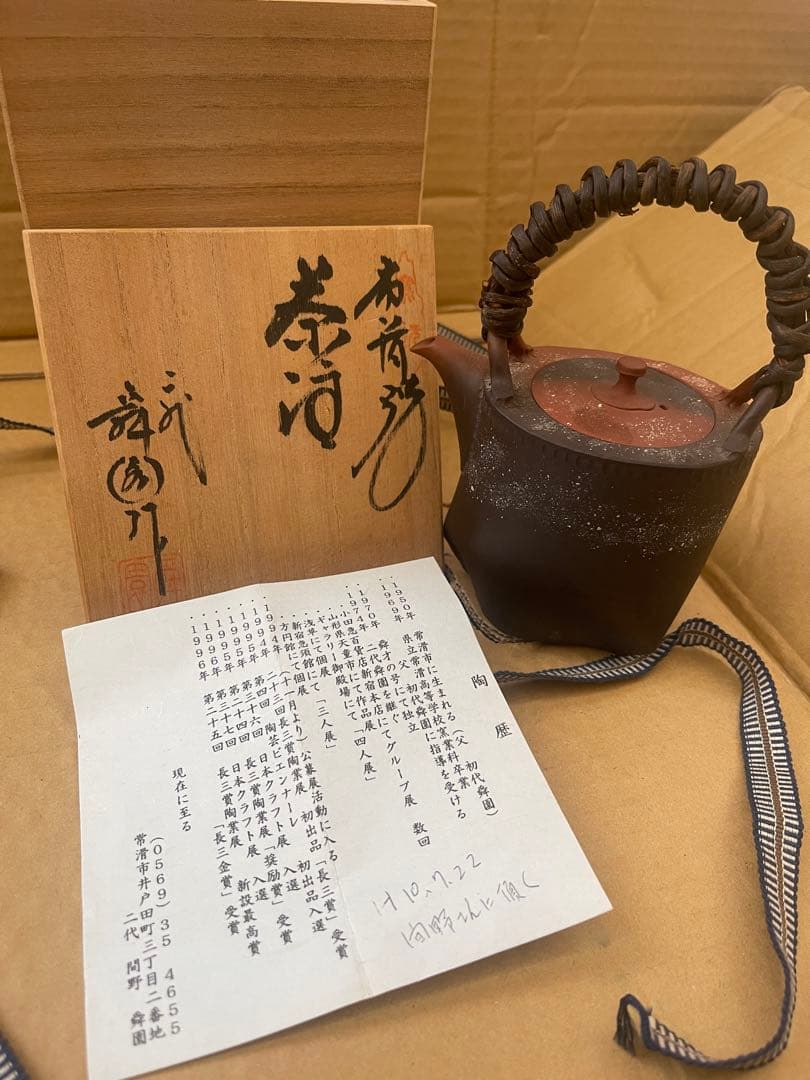 茶注
二代
舜園作
陶歴
・1950年 常滑市に生まれる(父 初代舜園)
・1969年 県立常滑高等学校窯業科卒業
父、初代舜園に指導を受ける
舜才の号にて独立
・1970年 二代舜園を継ぐ
・小田急百貨店新宿本店にてグループ展 数回
・1974年
・山形県天童市にて作品展「四人展」
・ギャラリー御殿場にて
・浅草にて個展「三人展」
・新宿急須館にて個展
・方円館にて個展(十一月より)公募展活動に入る
・1994年 二十三回長三賞陶業展 初出品「長三賞」受賞
・1994年 陶芸ビエンナーレ 初出品入選
・1995年 第四回 日本クラフト展 入選
・1995年 第三十六回 長三賞陶業展「奨励賞」受賞
・1995年 第二十四回 日本クラフト展 入選
・1996年 第三十七回 長三賞陶業展 新設最高賞
・1996年 第二十五回 「長三金賞」受賞
現在に至る
(0569)35 4655
常滑市井戸田町三丁目二番地
二代 間野 舜園
H10.7.22
間野さんに頂く